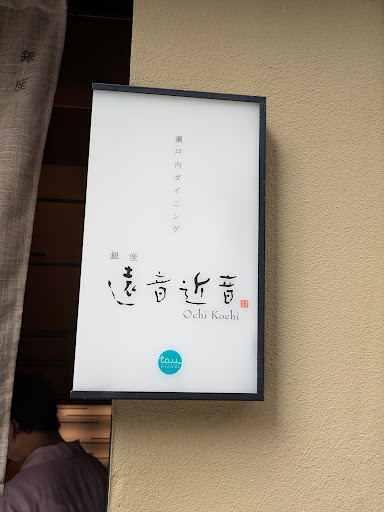 銀座
瀬戸内ダイニング
銀座
遠音近音
Ochi Kochi